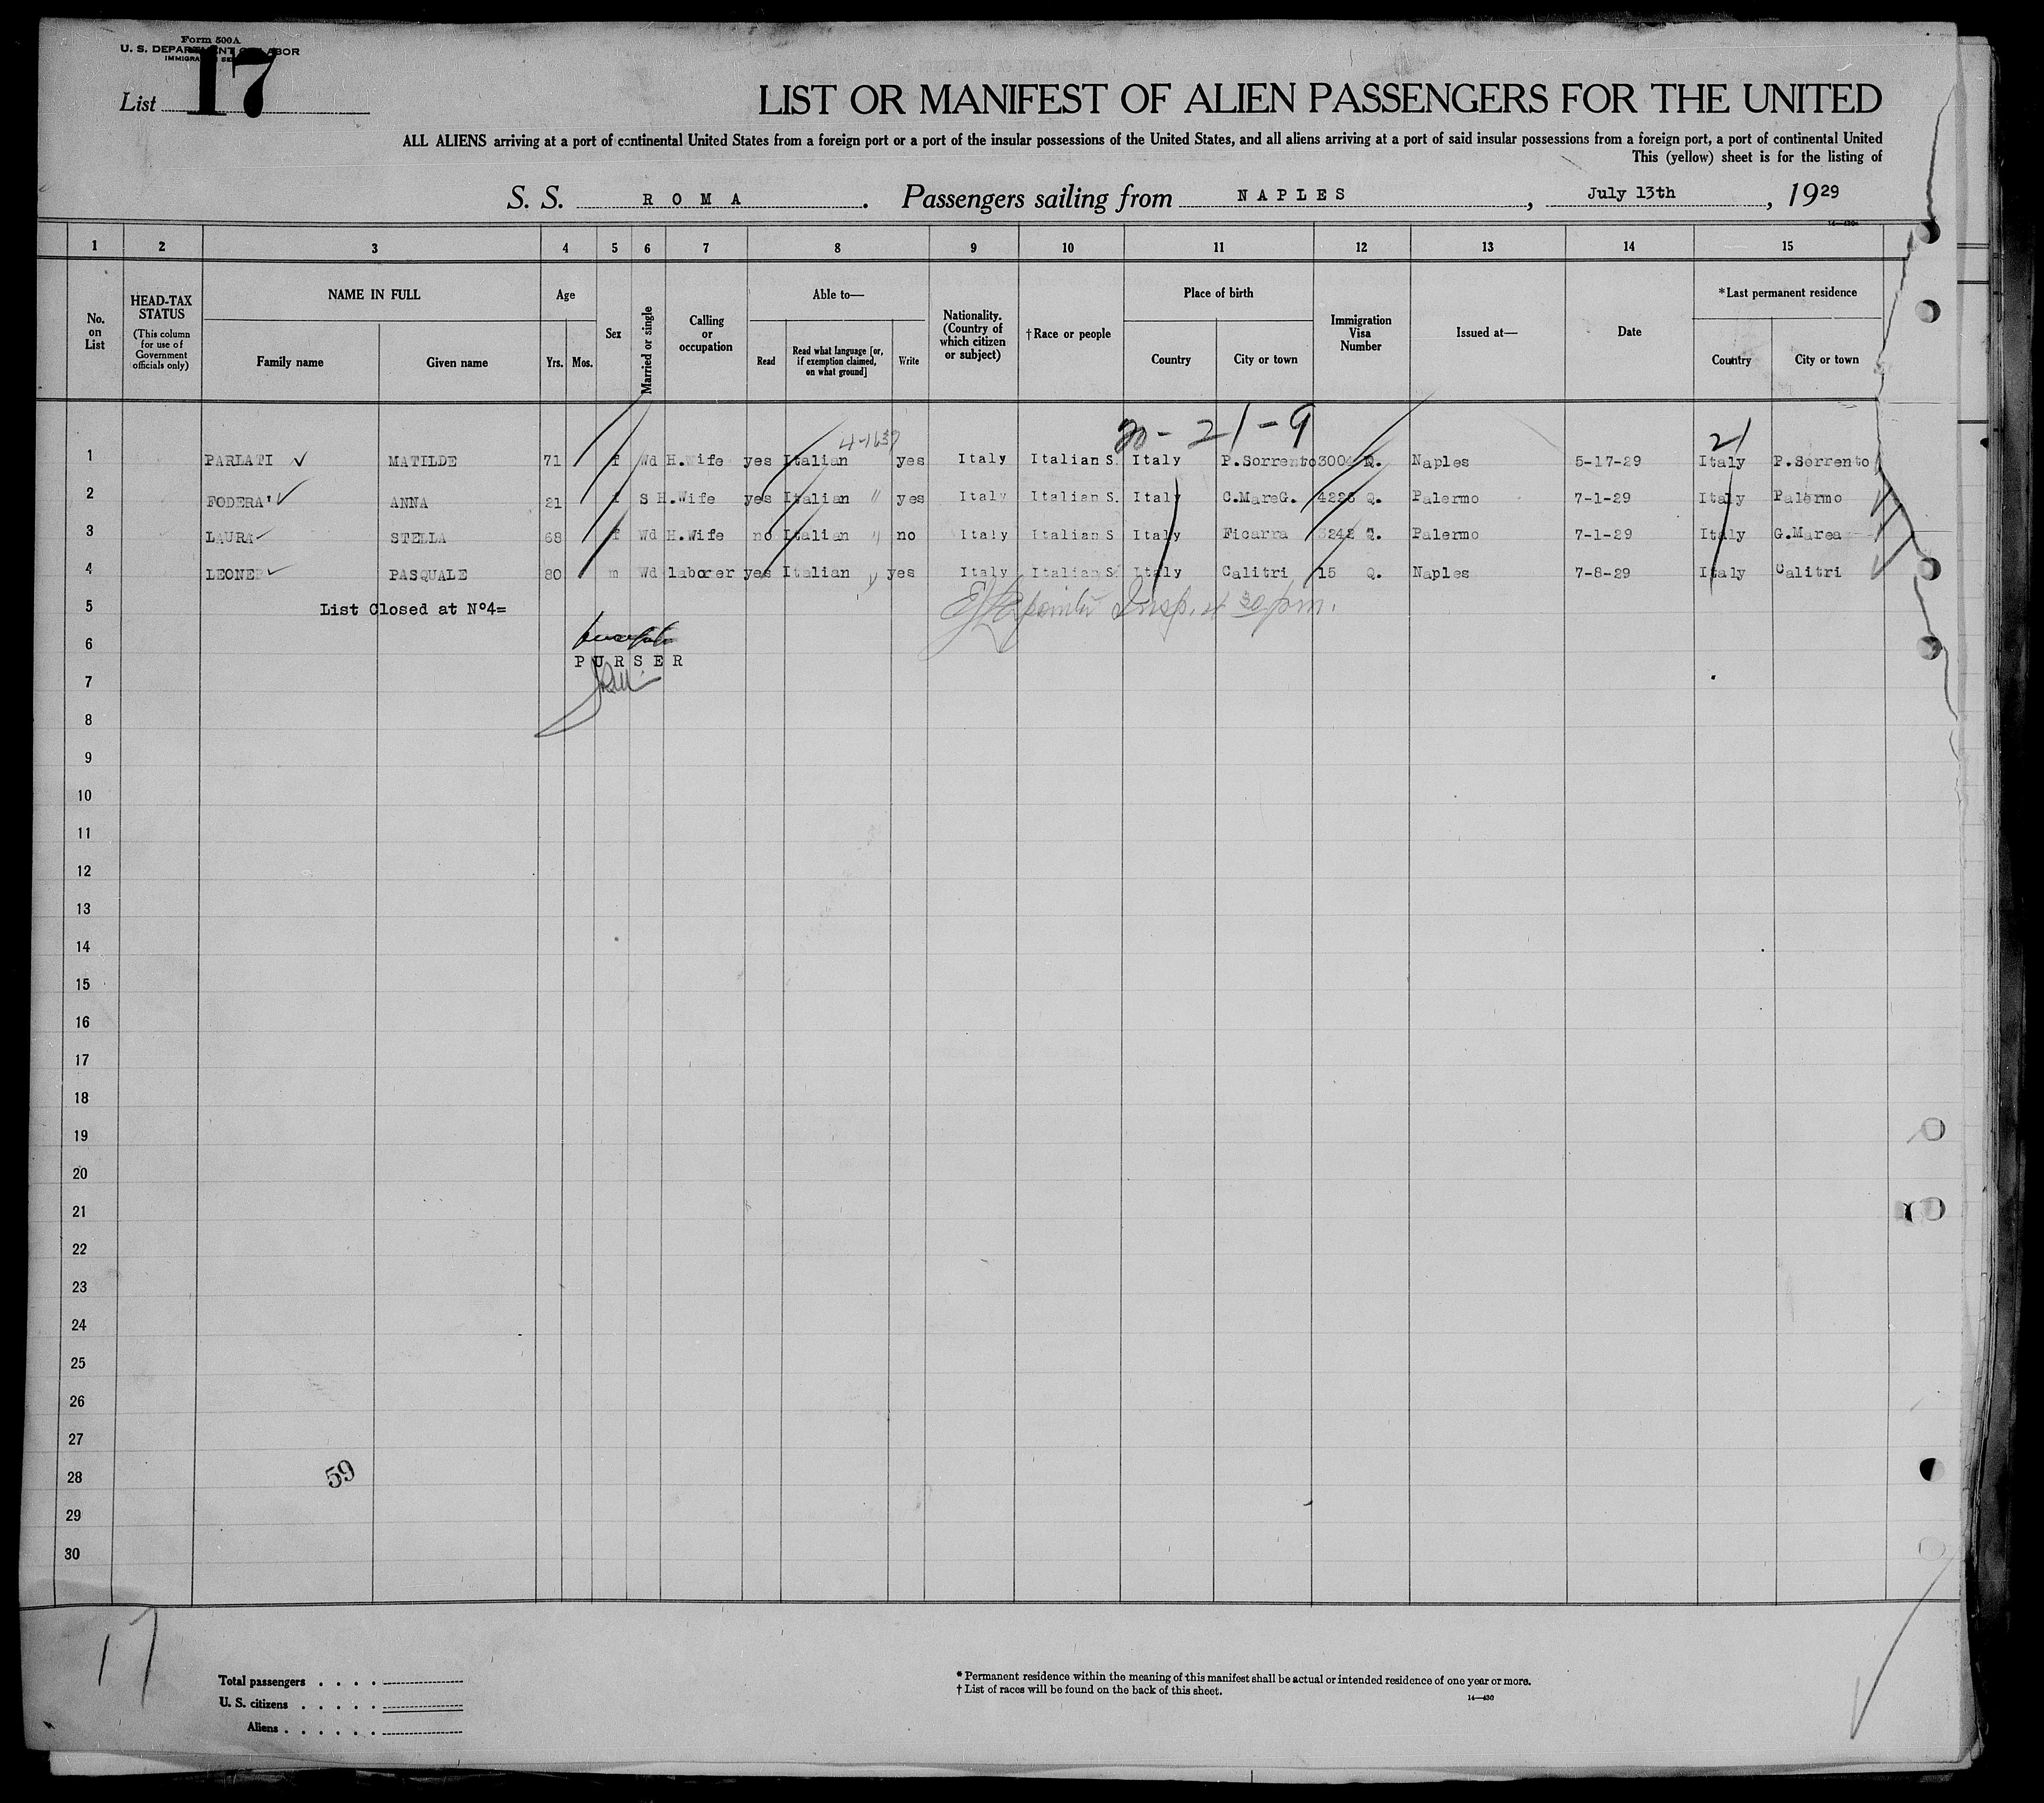 Form 500A
U. S. DEPARTMENT OF LABOR
List 17
LIST OR MANIFEST OF ALIEN PASSENGERS FOR THE UNITED
ALL ALIENS arriving at a port of continental United States from a foreign port or a port of the insular possessions of the United States, and all aliens arriving at a port of said insular possessions from a foreign port, a port of continental United
This (yellow) sheet is for the listing of
S. S. ROMA. Passengers sailing from NAPLES, July 13th, 1929
1 2 3 4 5 6 7 8 9 10 11 12 13 14 15
No. on List
HEAD-TAX STATUS (This column for use of Government officials only)
NAME IN FULL
Family name Given name
Age
Yrs. Mos.
Sex
Married or single
Calling or occupation
Able to—
Read Read what language [or, if exemption claimed, on what ground] Write
Nationality. (Country of which citizen or subject)
†Race or people
Place of birth
Country City or town
Immigration Visa Number
Issued at—
Date
*Last permanent residence
Country City or town
20-21-9 21
1 PARLATI MATILDE 71 f Wd H.Wife yes Italian yes Italy Italian S. Italy P.Sorrento Q. Naples 5-17-29 Italy P.Sorrento
2 FODERA' ANNA 21 f S H.Wife yes Italian " yes Italy Italian S. Italy C.MareG. Q. Palermo 7-1-29 Italy Palermo
3 LAURA STELLA 68 f Wd H.Wife no Italian " no Italy Italian S Italy Ficarra Q. Palermo 7-1-29 Italy G.Marea
4 LEONE PASQUALE 80 m Wd laborer yes Italian " yes Italy Italian S. Italy Calitri 15 Q. Naples 7-8-29 Italy Calitri
5 List Closed at Nº4=
6 PURSER
7
8
9
10
11
12
13
14
15
16
17
18
19
20
21
22
23
24
25
26
27
28 59
29
30
17
Total passengers
U. S. citizens
Aliens
* Permanent residence within the meaning of this manifest shall be actual or intended residence of one year or more.
† List of races will be found on the back of this sheet.
14—430